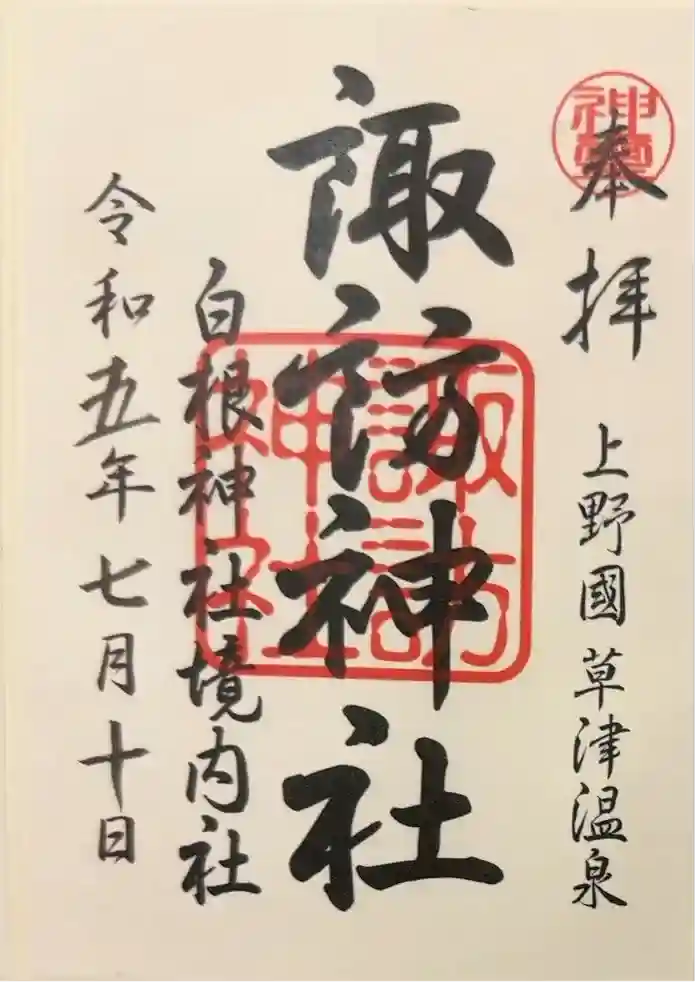 奉拝
上野國草津温泉
諏訪神社
諏訪
神社
白根神社境内社
令和五年七月十日